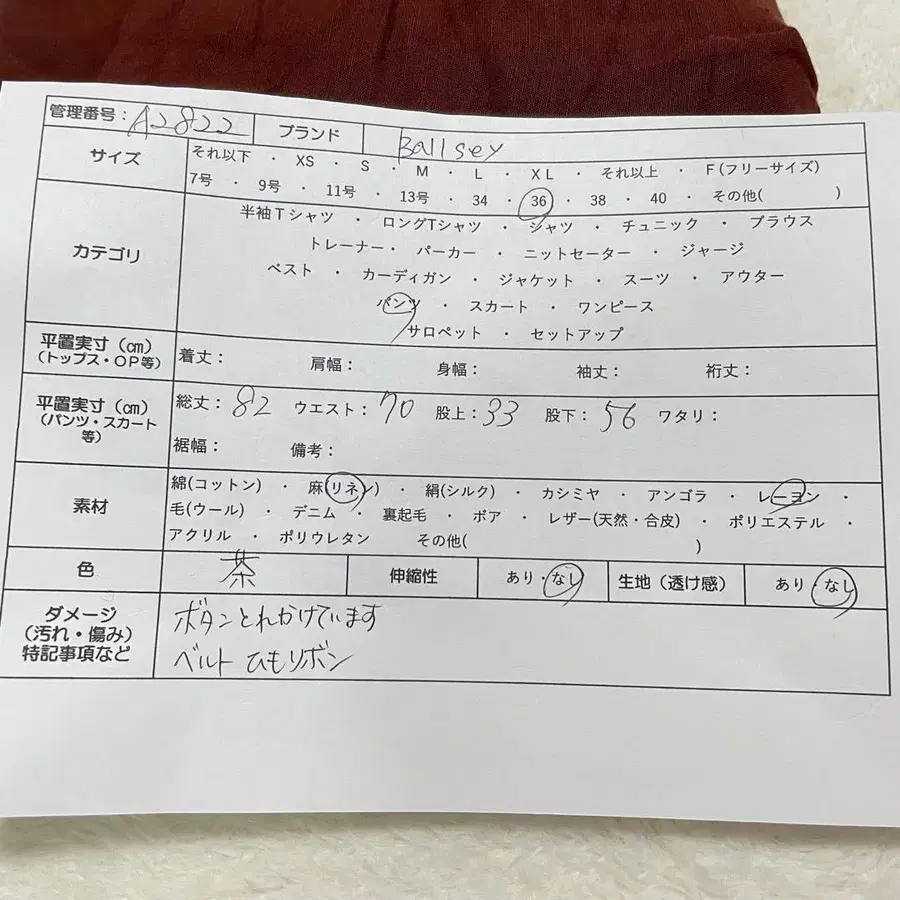 管理番号: A2822 ブランド Ballsey
サイズ それ以下 ・ XS ・ S ・ M ・ L ・ XL ・ それ以上 ・ F(フリーサイズ)
7号 ・ 9号 ・ 11号 ・ 13号 ・ 34 ・ 36 ・ 38 ・ 40 ・ その他( )
カテゴリ 半袖Tシャツ ・ ロングTシャツ ・ シャツ ・ チュニック ・ ブラウス
トレーナー・ パーカー ・ ニットセーター ・ ジャージ
ベスト ・ カーディガン ・ ジャケット ・ スーツ ・ アウター
パンツ ・ スカート ・ ワンピース
サロペット ・ セットアップ
平置実寸(㎝)
(トップス・OP等) 着丈: 肩幅: 身幅: 袖丈: 裄丈:
平置実寸(㎝)
(パンツ・スカート
等) 総丈: 82 ウエスト: 70 股上: 33 股下: 56 ワタリ:
裾幅: 備考:
素材 綿(コットン) ・ 麻(リネン) ・ 絹(シルク) ・ カシミヤ ・ アンゴラ ・ レーヨン ・
毛(ウール) ・ デニム ・ 裏起毛 ・ ボア ・ レザー(天然・合皮) ・ ポリエステル ・
アクリル ・ ポリウレタン その他( )
色 茶 伸縮性 あり・なし 生地(透け感) あり・なし
ダメージ
(汚れ・傷み)
特記事項など ボタンとれかけています
ベルト ひもリボン